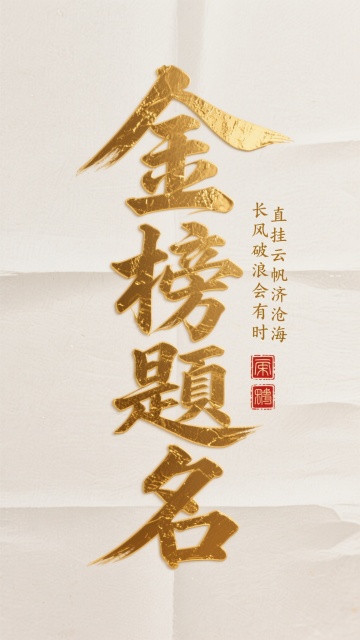 金榜题名
直挂云帆济沧海
长风破浪会有时